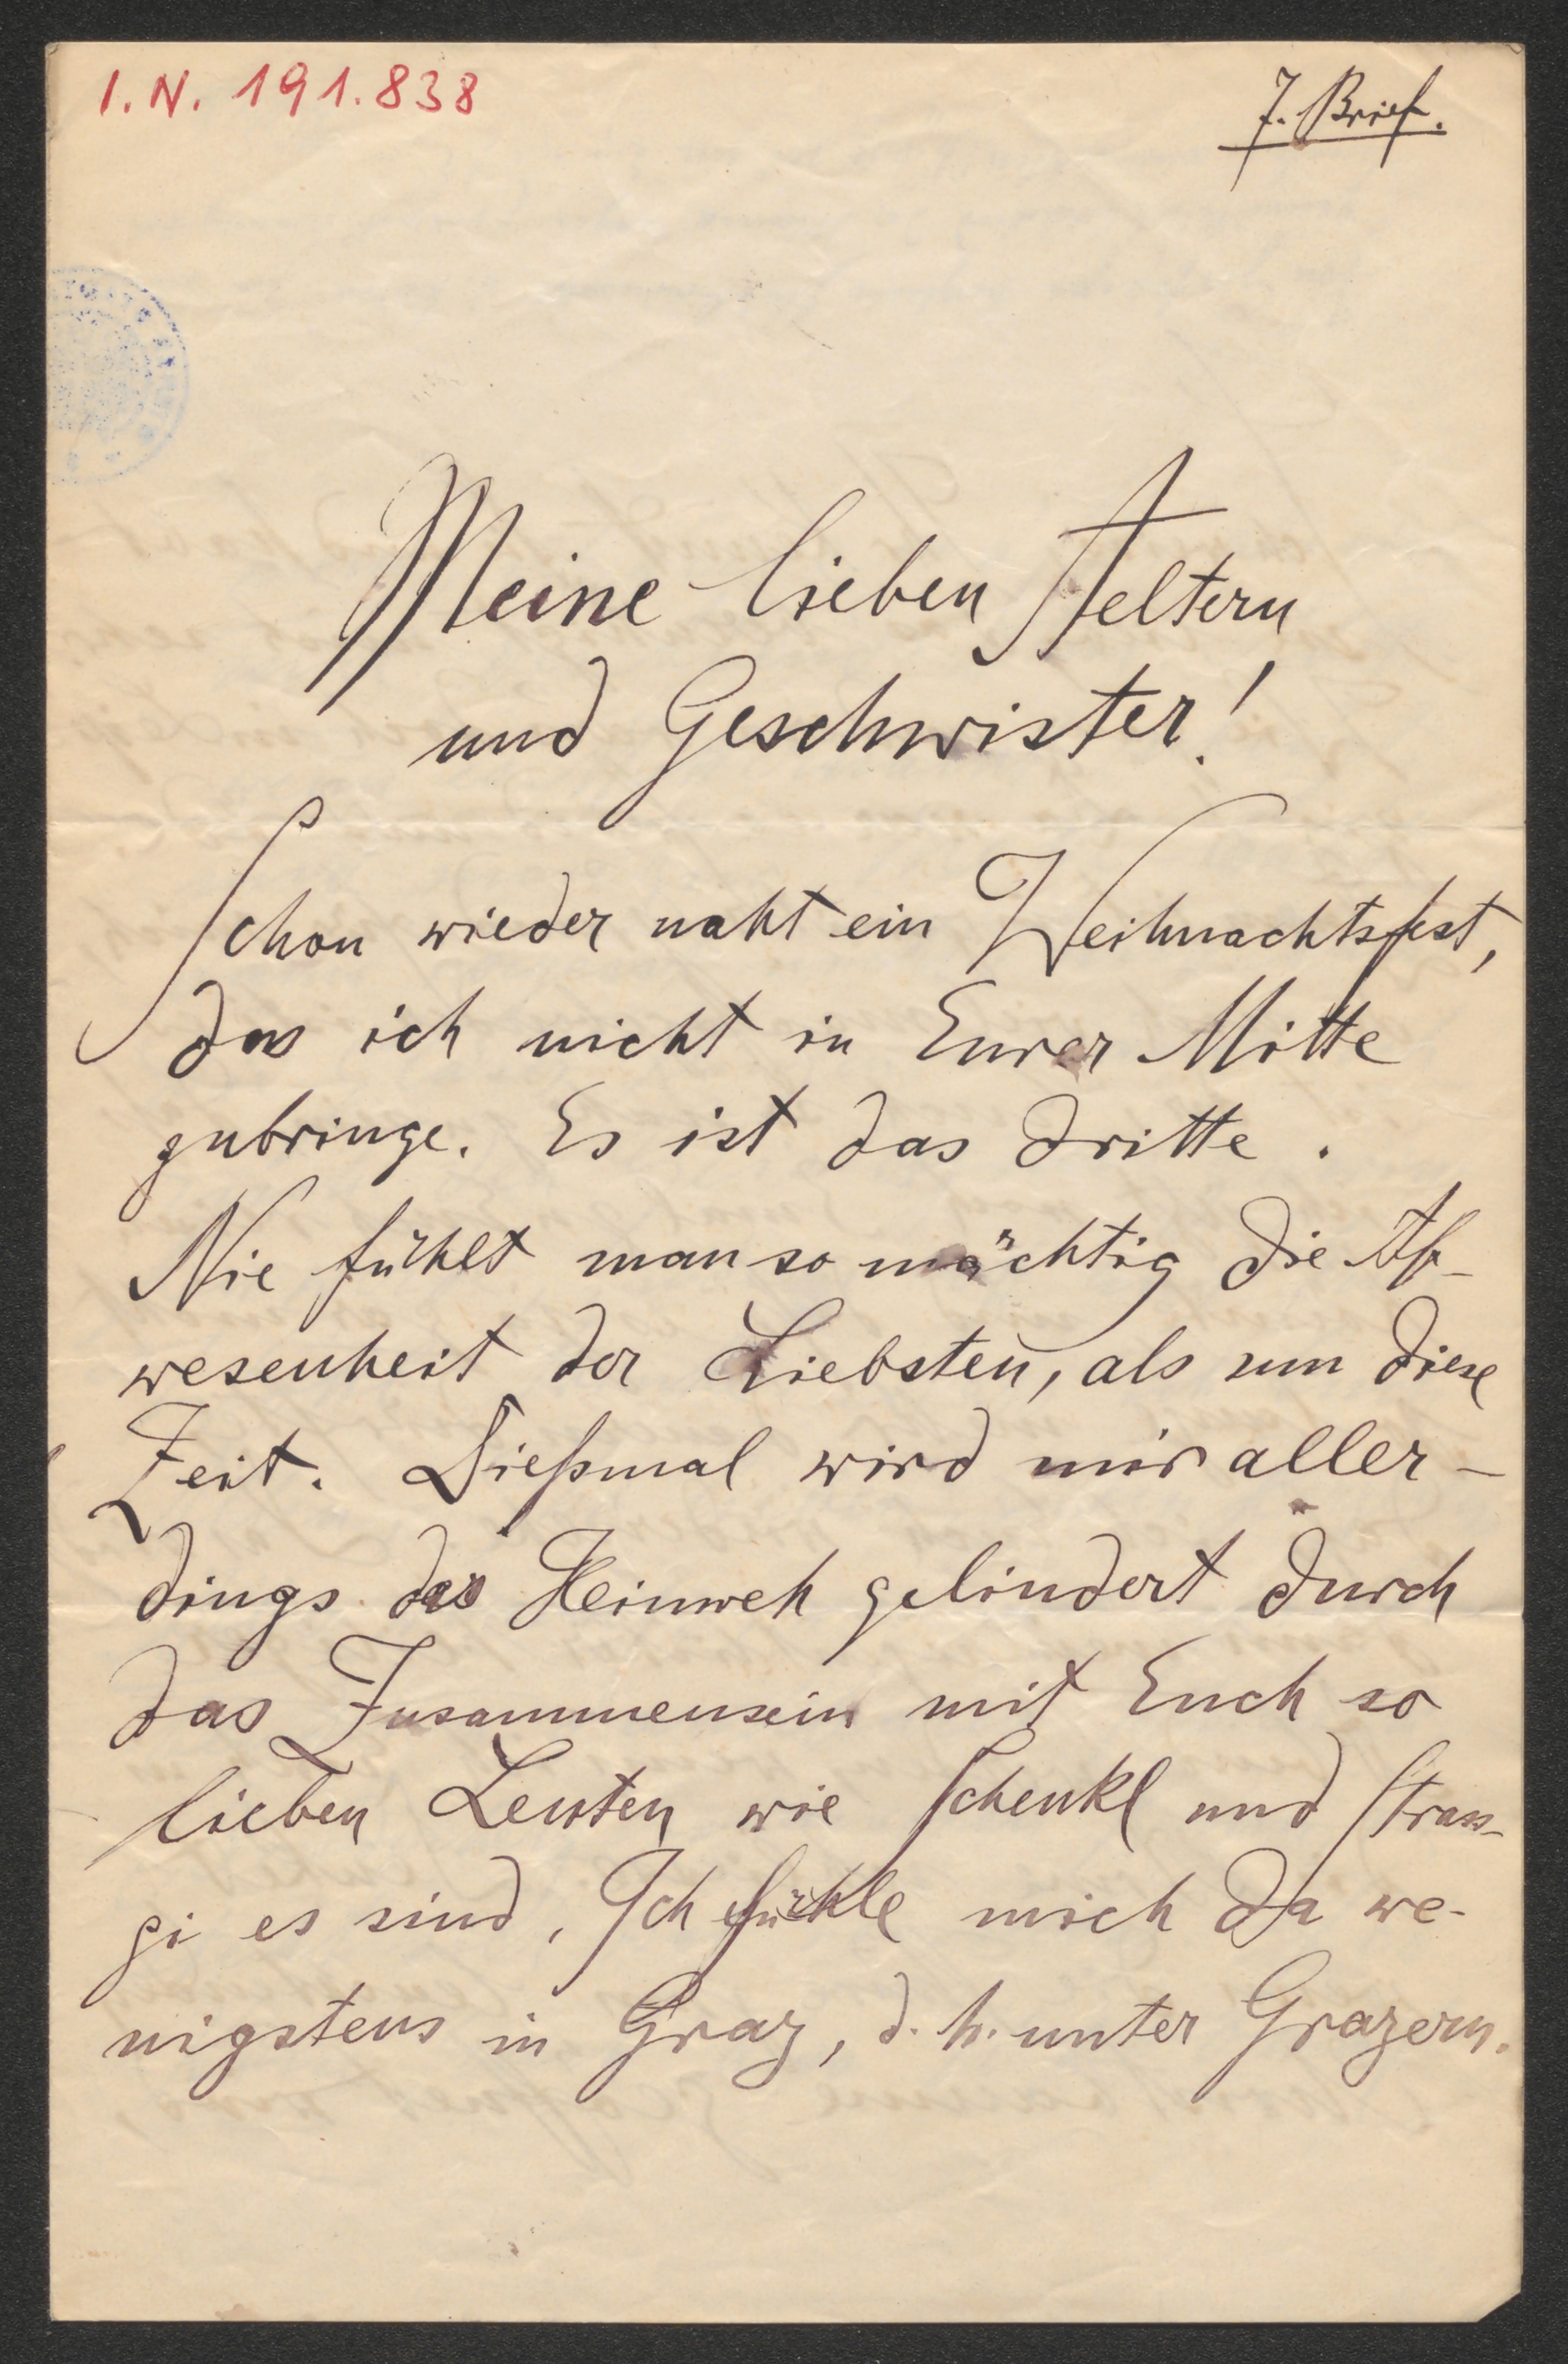 I. N. 191.838
7. Brief.
Meine lieben Aeltern
und Geschwister!
Schon wieder naht ein Weihnachtsfest,
das ich nicht in Eurer Mitte
zubringe. Es ist das dritte.
Nie fühlt man so mächtig die Ab-
wesenheit der Liebsten, als um diese
Zeit. Dießmal wird mir aller-
dings das Heimweh gelindert durch
das Zusammensein mit Euch so
lieben Leuten wie Schenkl und Stran-
gi es sind. Ich fühle mich da we-
nigstens in Graz, d. h. unter Grazern.